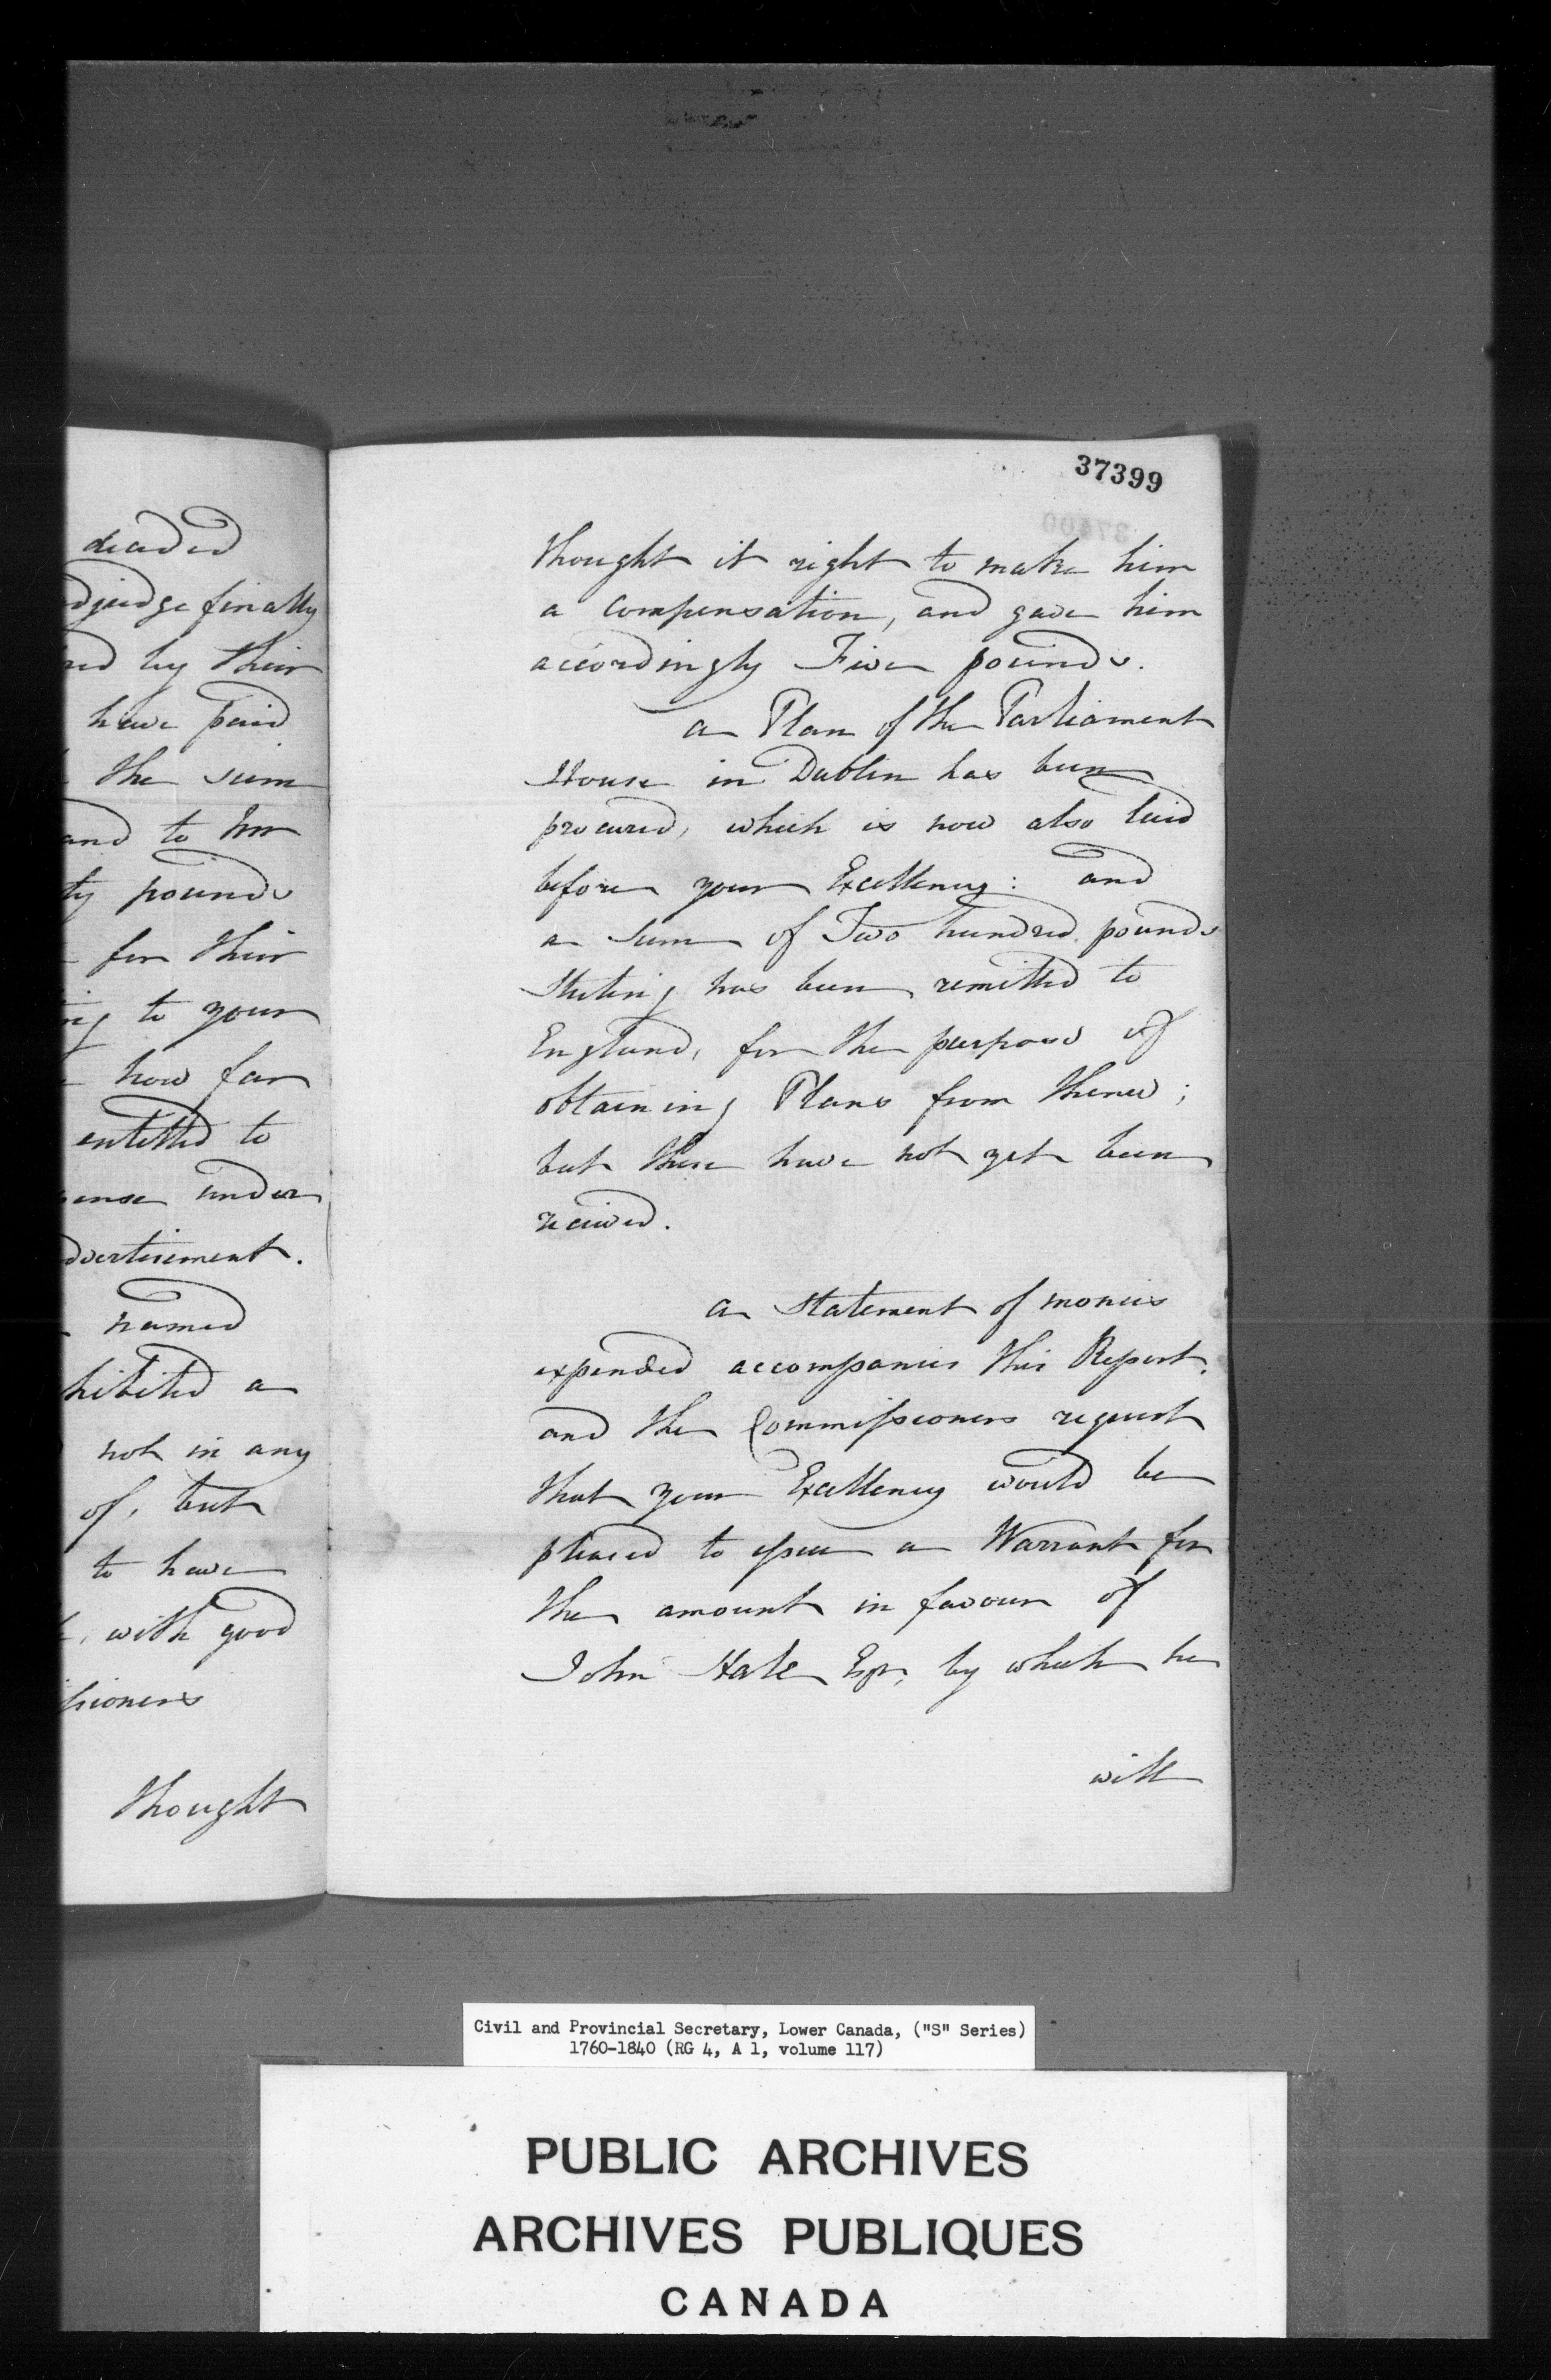 decided
djudge finally
red by their
have paid
the sum
and to Mr
ty pounds
for their
ing to your
how far
entitled to
pense under
dvertisement.
named
hibited a
not in any
of, but
to have
with good
ssioners
thought
37399
thought it right to make him
a compensation, and gave him
accordingly Five pounds.
a Plan of the Parliament
House in Dublin has been
procured, which is now also laid
before your Excellency: and
a sum of Two hundred pounds
Sterling has been remitted to
England, for the purpose of
obtaining Plans from thence;
but these have not yet been
received.
a Statement of monies
expended accompanies this Report,
and the Commissioners request
that your Excellency would be
pleased to issue a Warrant for
the amount in favour of
John Hale Esqr, by which he
will
Civil and Provincial Secretary, Lower Canada, ("S" Series)
1760-1840 (RG 4, A 1, volume 117)
PUBLIC ARCHIVES
ARCHIVES PUBLIQUES
CANADA